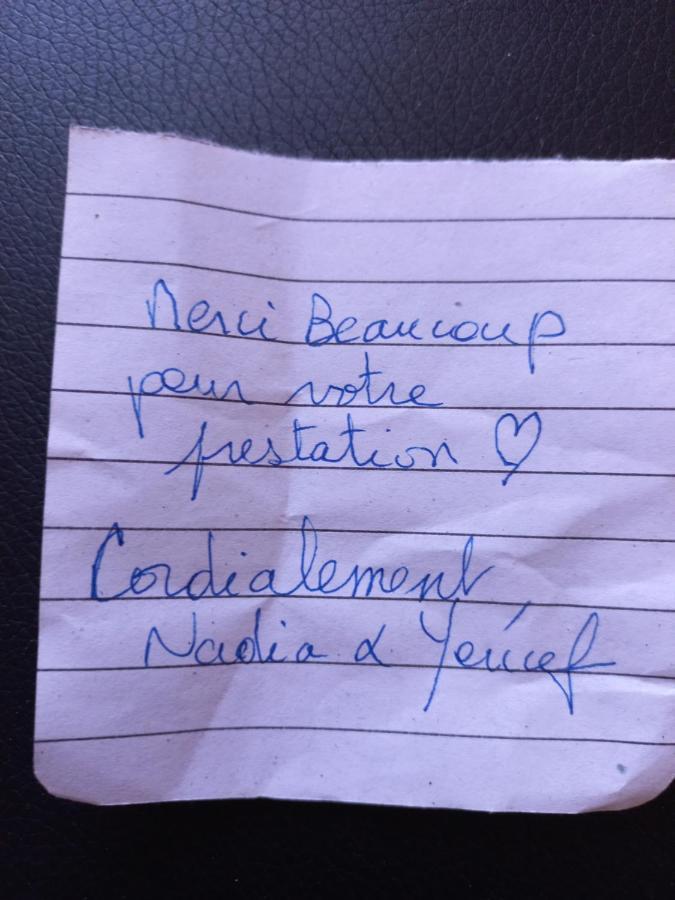 Merci Beaucoup
pour votre
prestation ♡
Cordialement,
Nadia & Youcef